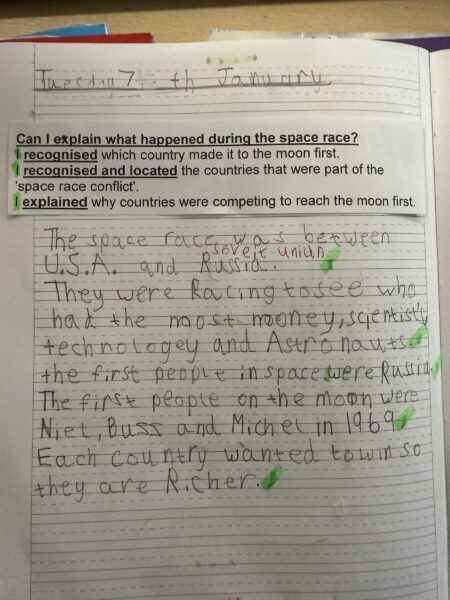 Tuesday 7th January
Can I explain what happened during the space race?
I recognised which country made it to the moon first.
I recognised and located the countries that were part of the
'space race conflict'.
I explained why countries were competing to reach the moon first.
The space race was between
soveit uniun
U.S.A. and Russia.
They were Racing to see who
had the most mooney, scientist's
technologey and Astronauts.
the first people in space were Russia.
The first people on the moon were
Niel, Buss and Michel in 1969
Each country wanted to win so
they are Richer.